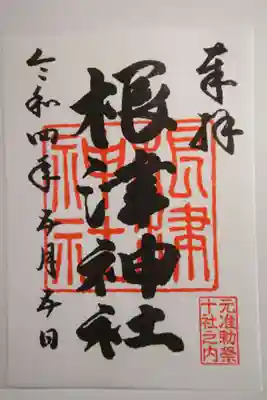 奉拝
根津神社
根津神社
令和四年五月五日
元准勅祭
十社之内